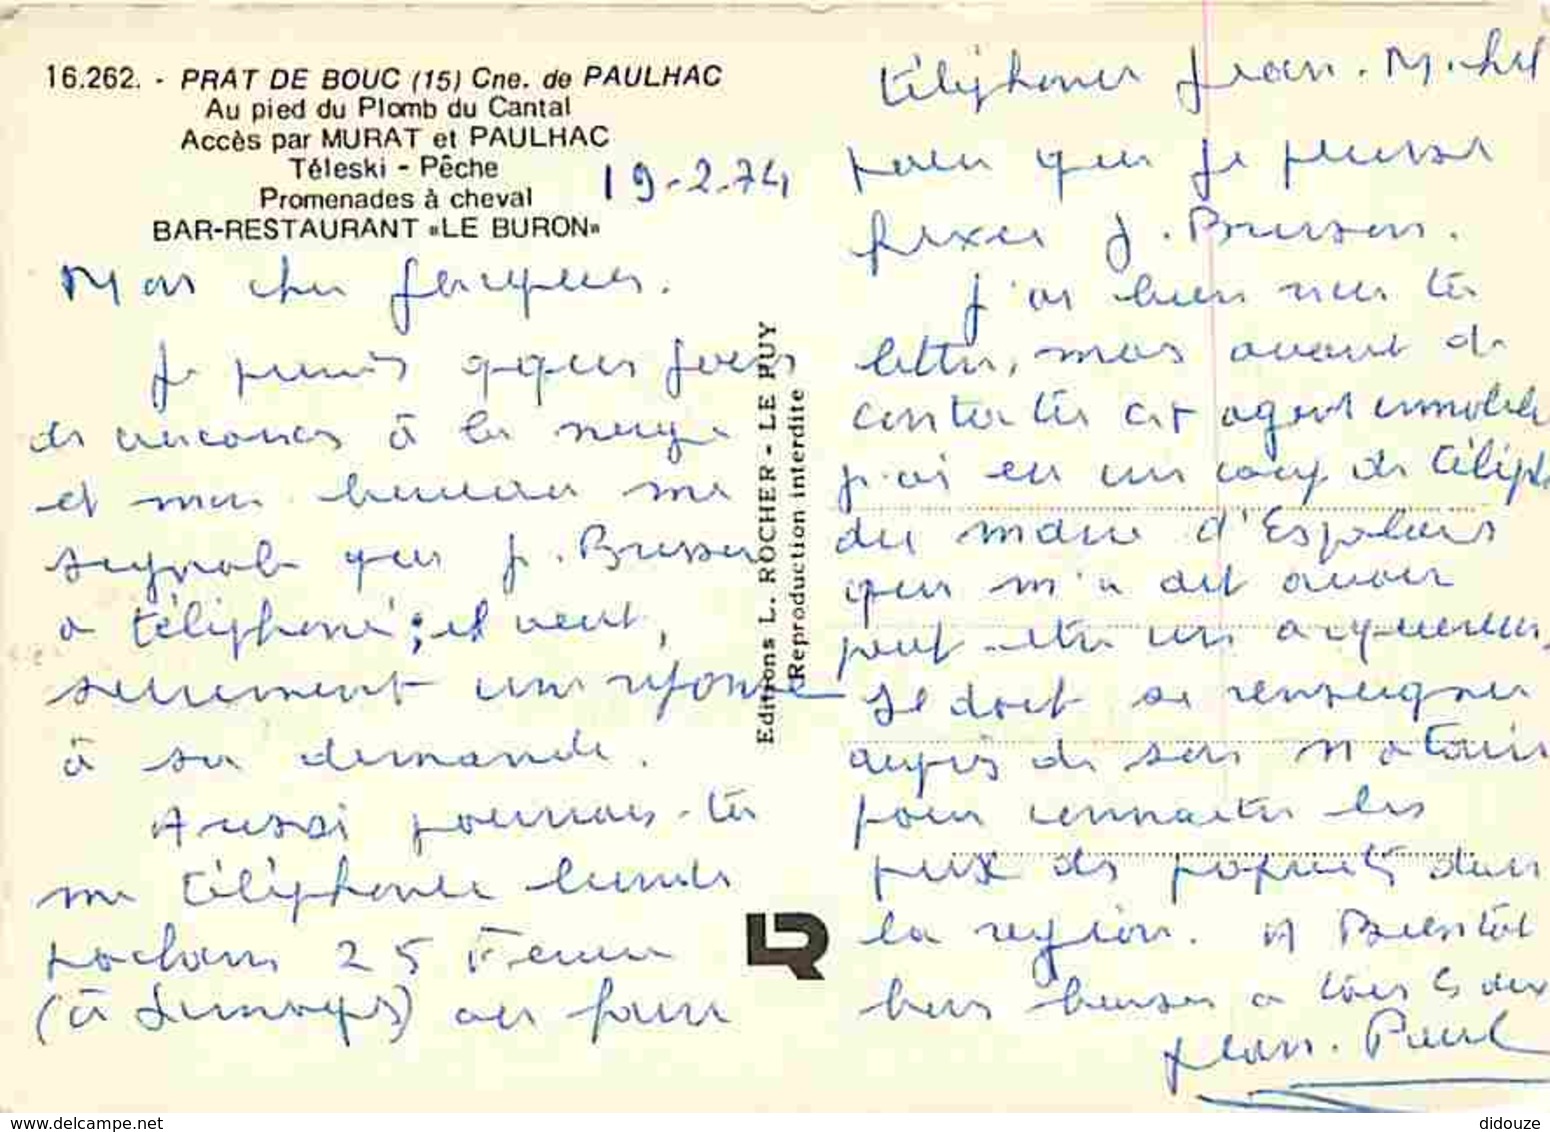 16.262. - PRAT DE BOUC (15) Cne. de PAULHAC
Au pied du Plomb du Cantal
Accès par MURAT et PAULHAC
Téleski - Pêche
Promenades à cheval
BAR-RESTAURANT «LE BURON»
19-2-74
Mon cher Jacques.
Je prends qques jours
de vacances à la neige
et mon bureau me
signale que J. Brisson
a téléphoné ; il veut,
sûrement une réponse
à sa demande.
Aussi pourrais-tu
me téléphoner lundi
prochain 25 Février
(à Limoges) ou faire
téléphoner Jean-Michel
pour que je puisse
fixer J. Brisson.
J'ai bien reçu ta
lettre, mais avant de
contacter cet agent immobilier
j'ai eu un coup de téléph
du maire d'Espalais
qui m'a dit avoir
peut-être un acquéreur,
Il doit se renseigner
auprès de son notaire
pour connaître les
prix des propriétés dans
la région. A Bientôt
bons baisers à tous les deux
Jean-Paul
Editions L. ROCHER - LE PUY
Reproduction interdite
LR
www.delcampe.net
didouze